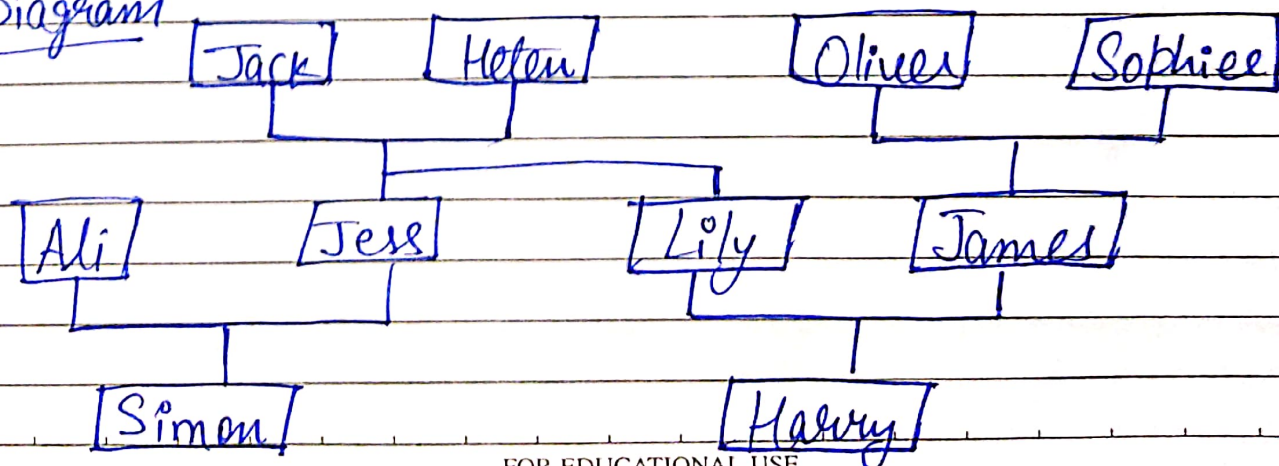 Diagram
Jack Helen Oliver Sophiee
Ali Jess Lily James
Simon Harry
FOR EDUCATIONAL USE